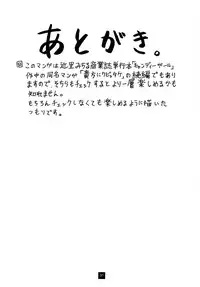 あとがき。
このマンガは近里みちる商業誌単行本「キャンディーガール」
作中の同名マンガ「貴方にクビッタケ」の続編でもあり
ますので、そちらもチェックするとより一層楽しめるかも
知れません。
もちろんチェックしなくても楽しめるように描いた
つもりです。